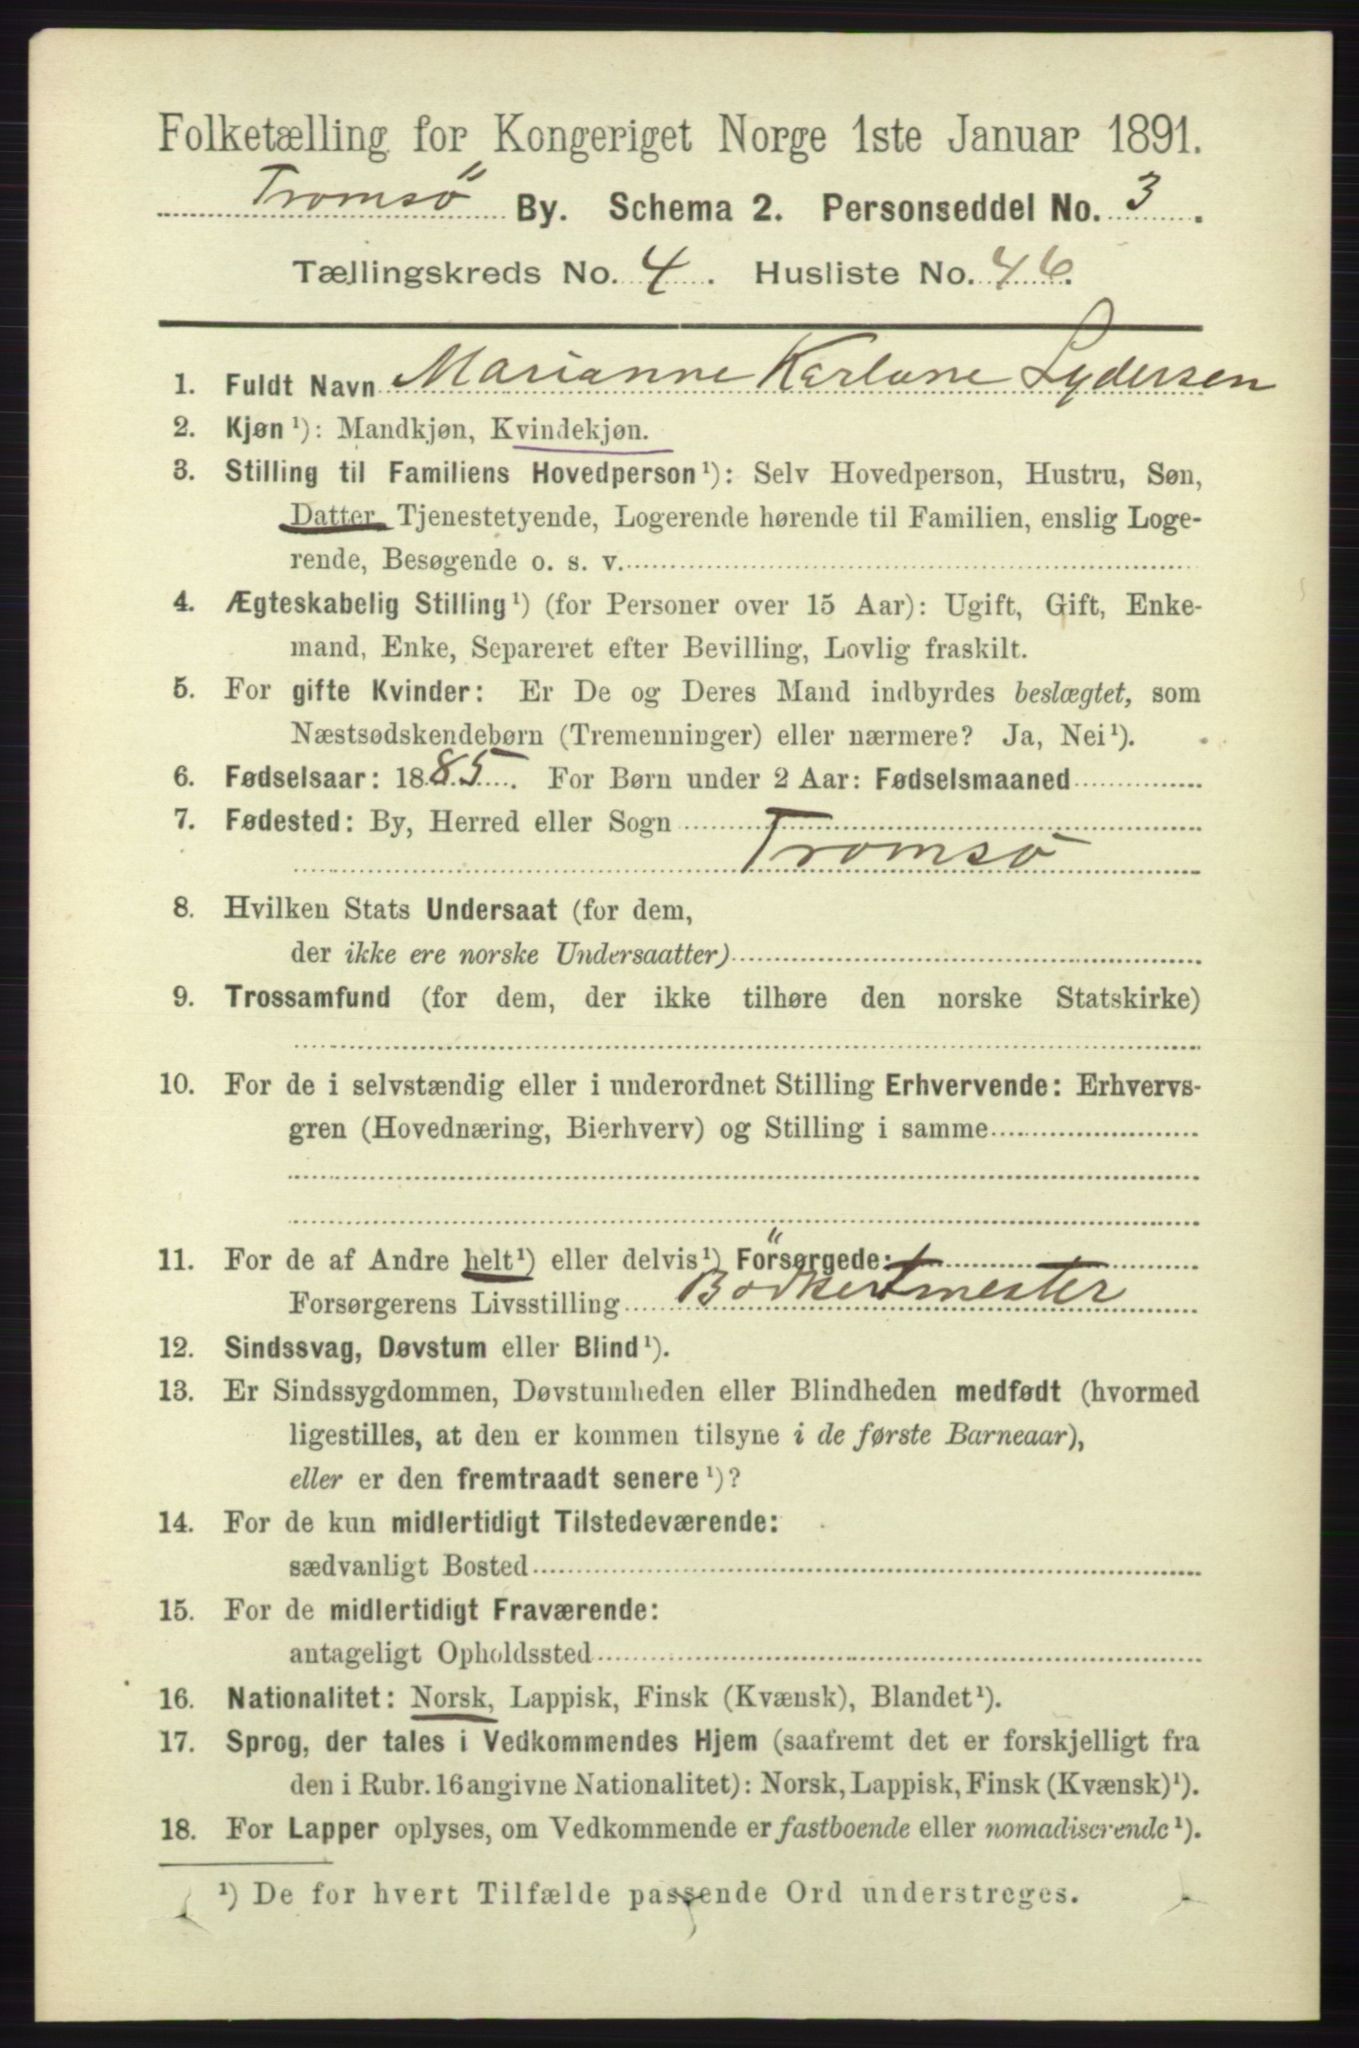 Folketælling for Kongeriget Norge 1ste Januar 1891.
Tromsö By. Schema 2. Personseddel No. 3.
Tællingskreds No. 4. Husliste No. 46.
1. Fuldt Navn Marianne Karlvne Lydersen
2. Kjøn¹): Mandkjøn, Kvindekjøn.
3. Stilling til Familiens Hovedperson¹): Selv Hovedperson, Hustru, Søn,
Datter, Tjenestetyende, Logerende hørende til Familien, enslig Loge-
rende, Besøgende o. s. v.
4. Ægteskabelig Stilling¹) (for Personer over 15 Aar): Ugift, Gift, Enke-
mand, Enke, Separeret efter Bevilling, Lovlig fraskilt.
5. For gifte Kvinder: Er De og Deres Mand indbyrdes beslægtet, som
Næstsødskendebørn (Tremenninger) eller nærmere? Ja, Nei¹).
6. Fødselsaar: 1885. For Børn under 2 Aar: Fødselsmaaned
7. Fødested: By, Herred eller Sogn
Tromsö
8. Hvilken Stats Undersaat (for dem,
der ikke ere norske Undersaatter)
9. Trossamfund (for dem, der ikke tilhøre den norske Statskirke)
10. For de i selvstændig eller i underordnet Stilling Erhvervende: Erhvervs-
gren (Hovednæring, Bierhverv) og Stilling i samme
11. For de af Andre helt¹) eller delvis¹) Forsørgede:
Forsørgerens Livsstilling Bödkermester
12. Sindssvag, Døvstum eller Blind¹).
13. Er Sindssygdommen, Døvstumheden eller Blindheden medfødt (hvormed
ligestilles, at den er kommen tilsyne i de første Barneaar),
eller er den fremtraadt senere¹)?
14. For de kun midlertidigt Tilstedeværende:
sædvanligt Bosted
15. For de midlertidigt Fraværende:
antageligt Opholdssted
16. Nationalitet: Norsk, Lappisk, Finsk (Kvænsk), Blandet¹).
17. Sprog, der tales i Vedkommendes Hjem (saafremt det er forskjelligt fra
den i Rubr. 16 angivne Nationalitet): Norsk, Lappisk, Finsk (Kvænsk)¹).
18. For Lapper oplyses, om Vedkommende er fastboende eller nomadiserende¹).
¹) De for hvert Tilfælde passende Ord understreges.